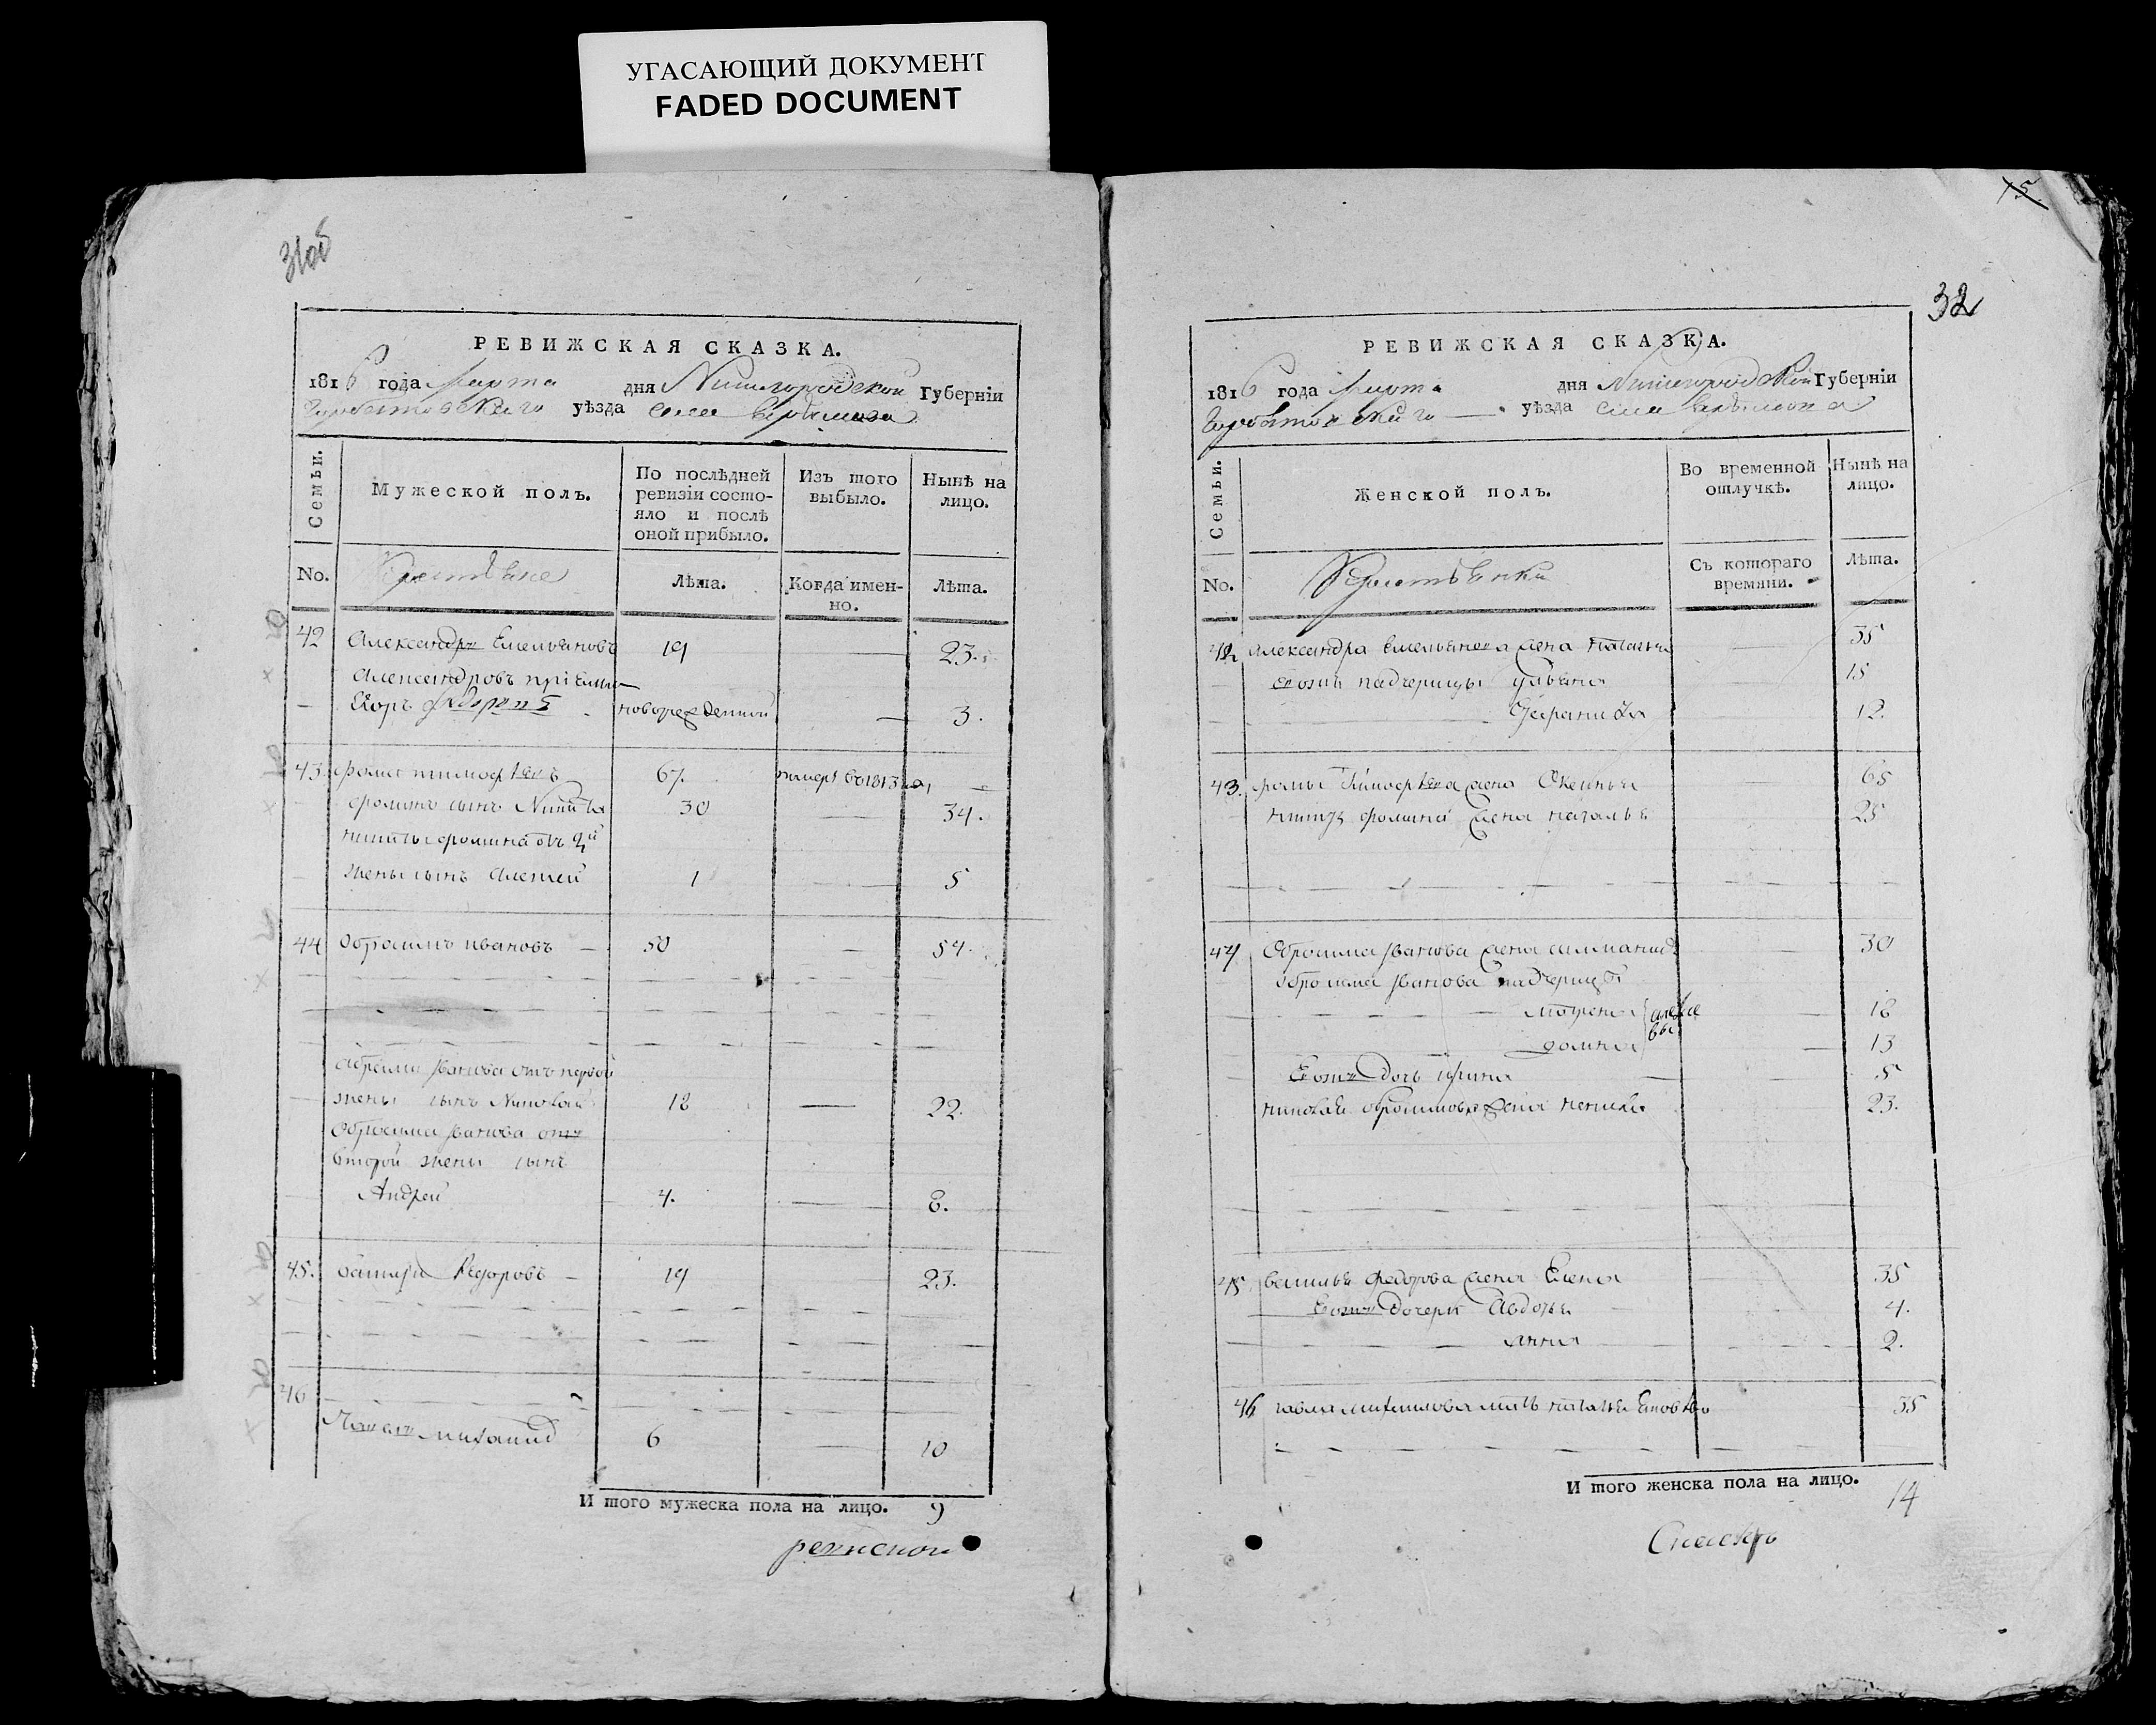 УГАСАЮЩИЙ ДОКУМЕНТ
FADED DOCUMENT
31об
РЕВИЖСКАЯ СКАЗКА.
1816 года марта дня Нижегородской Губерніи
Горбатовскаго уѣзда села
Семьи.
Мужеской полъ.
По послѣдней ревизіи состо-
яло и послѣ
оной прибыло.
Изъ того выбыло.
Нынѣ на лицо.
No.
Крестьяне
Лѣта.
Когда имен-
но.
Лѣта.
42 Александръ Емельяновъ 19 — 23.
Александровъ пріемыш
— Егоръ новорожденной — 3.
43. фома тимофеевъ 67. умеръ въ 1813 —
фоминъ сынъ Никита 30 — 34.
никиты фомина отъ
жены сынъ алексей 1 — 5
44 Обросимъ ивановъ — 50 — 54.
Абросима иванова отъ первой
жены сынъ Николай 18 — 22.
Обросима иванова отъ
второй жены сынъ
Андрей 4. — 8.
45. василеи Федоровъ — 19 23.
46
михаилов 6 — 10
И того мужеска пола на лицо. 9
15
32
РЕВИЖСКАЯ СКАЗКА.
1816 года марта дня Нижегородской Губерніи
Горбатовскаго — уѣзда села
Семьи.
Женской полъ.
Во временной
отлучкѣ.
Нынѣ на
лицо.
No.
Крестьянки
Съ котораго
времяни.
Лѣта.
42 Александра Емельянова жена наталья — 35
Его жъ падчерицы ульяна 15
12.
43. фомы Тимофеева жена Оксинья — 65
никиты фомина жена наталья 25
44 Обросима Иванова жена 30
обросима Иванова падчерицы
матрена алексее 18
домна вы 13
Его жъ дочь ирина — 5
николая обросимова жена 23.
45 василья федорова жена Елена 35
Его жъ дочери Авдотья 4.
анна 2.
46 павла михаилова мать наталья 35
И того женска пола на лицо. 14